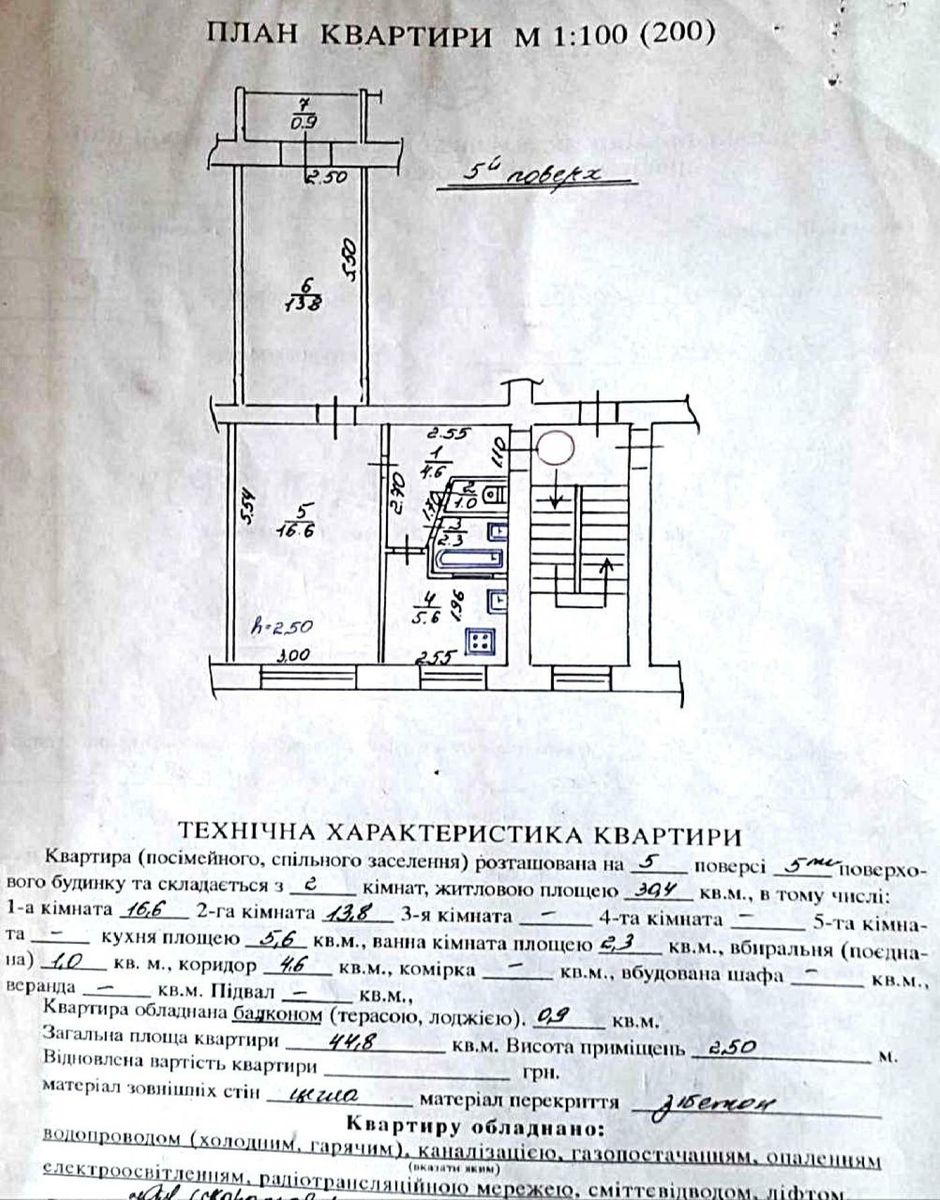 ПЛАН КВАРТИРИ М 1:100 (200)
7
0.9
2.50
5й поверх
5.50
6
13.8
2.55
1
4.6
1.10
2.70
2
1.0
1.70
3
2.3
5.54
5
16.6
4
5.6
1.96
h=2.50
3.00
2.55
ТЕХНІЧНА ХАРАКТЕРИСТИКА КВАРТИРИ
Квартира (посімейного, спільного заселення) розташована на 5 поверсі 5ти поверхо-
вого будинку та складається з 2 кімнат, житловою площею 30,4 кв.м., в тому числі:
1-а кімната 16,6 2-га кімната 13,8 3-я кімната — 4-та кімната — 5-та кімна-
та — кухня площею 5,6 кв.м., ванна кімната площею 2,3 кв.м., вбиральня (поєдна-
на) 1,0 кв. м., коридор 4,6 кв.м., комірка — кв.м., вбудована шафа — кв.м.,
веранда — кв.м. Підвал — кв.м.,
Квартира обладнана балконом (терасою, лоджією). 0,9 кв.м.
Загальна площа квартири 44,8 кв.м. Висота приміщень 2,50 м.
Відновлена вартість квартири грн.
матеріал зовнішніх стін цегла матеріал перекриття з/бетон
Квартиру обладнано:
водопроводом (холодним, гарячим), каналізацією, газопостачанням, опаленням
(вказати яким)
електроосвітленням, радіотрансляційною мережею, сміттєвідводом, ліфтом